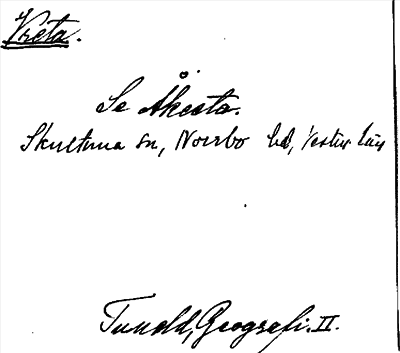 Vreta.
Se Åkesta.
Skultuna sn, Norrbo hd, Västm. län
Tuneld, Geografi. II.